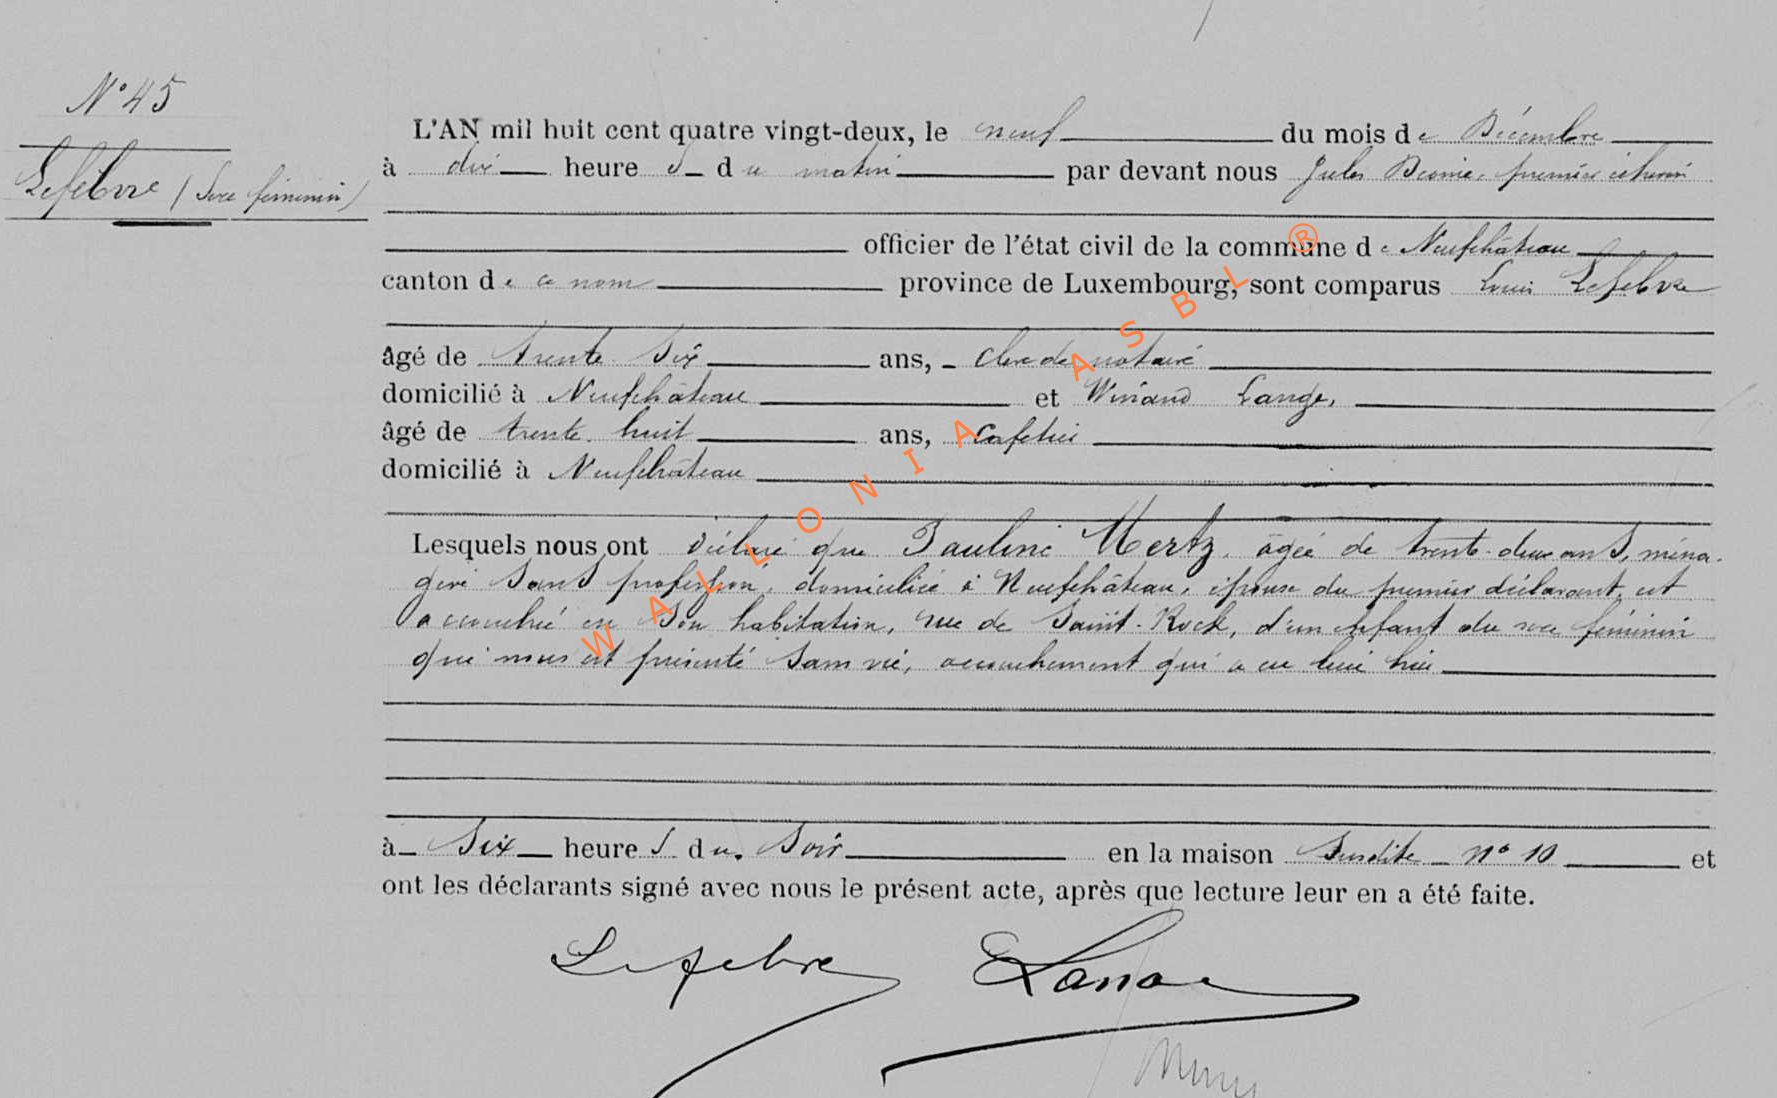 N° 45
Lefebvre (Sexe féminin)
L'AN mil huit cent quatre vingt-deux, le neuf du mois de Décembre
à dix heures du matin par devant nous Jules premier échevin
officier de l'état civil de la commune de Neufchâteau
canton de ce nom province de Luxembourg, sont comparus Louis Lefebvre
âgé de trente six ans, clerc de notaire
domicilié à Neufchâteau et Winand Lange,
âgé de trente huit ans, cafetier
domicilié à Neufchâteau
Lesquels nous ont déclaré que Pauline Mertz, âgée de trente-deux ans, ména-
gère sans profession, domiciliée à Neufchâteau, épouse du premier déclarant, est
accouchée en son habitation, rue de Saint-Roch, d'un enfant du sexe féminin
qui nous est présenté sans vie, accouchement qui a eu lieu hier
à six heures du soir en la maison susdite n° 10 et
ont les déclarants signé avec nous le présent acte, après que lecture leur en a été faite.
Lefebvre Lange
WALLONIA ASBL ®